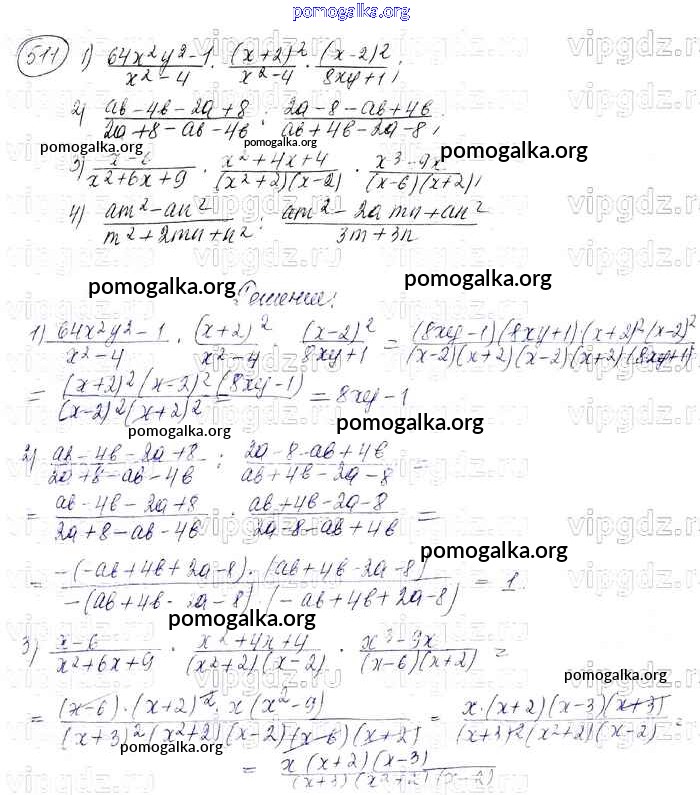 pomogalka.org
511 1) (64x²y²-1)/(x²-4) · (x+2)²/(x²-4) · (x-2)²/(8xy+1);
2) (ab-4b-2a+8)/(2a+8-ab-4b) : (2a-8-ab+4b)/(ab+4b-2a-8);
pomogalka.org
3) (x-6)/(x²+6x+9) · (x²+4x+4)/((x²+2)(x-2)) · (x³-9x)/((x-6)(x+2));
pomogalka.org
4) (am²-an²)/(m²+2mn+n²) : (am²-2amn+an²)/(3m+3n)
pomogalka.org pomogalka.org
Решение:
1) (64x²y²-1)/(x²-4) · (x+2)²/(x²-4) · (x-2)²/(8xy+1) = ((8xy-1)(8xy+1)·(x+2)²(x-2)²)/((x-2)(x+2)(x-2)(x+2)(8xy+1))
= ((x+2)²(x-2)²(8xy-1))/((x-2)²(x+2)²) = 8xy-1
pomogalka.org
pomogalka.org
2) (ab-4b-2a+8)/(2a+8-ab-4b) : (2a-8-ab+4b)/(ab+4b-2a-8) =
= (ab-4b-2a+8)/(2a+8-ab-4b) · (ab+4b-2a-8)/(2a-8-ab+4b) =
pomogalka.org
= (-(-ab+4b+2a-8)·(ab+4b-2a-8))/(-(ab+4b-2a-8)(-ab+4b+2a-8)) = 1.
pomogalka.org
3) (x-6)/(x²+6x+9) · (x²+4x+4)/((x²+2)(x-2)) · (x³-9x)/((x-6)(x+2)) =
pomogalka.org
= ((x-6)·(x+2)²·x(x²-9))/((x+3)²(x²+2)(x-2)(x-6)(x+2)) = (x·(x+2)(x-3)(x+3))/((x+3)²(x²+2)(x-2)) =
pomogalka.org
= (x(x+2)(x-3))/((x+3)(x²+2)(x-2))